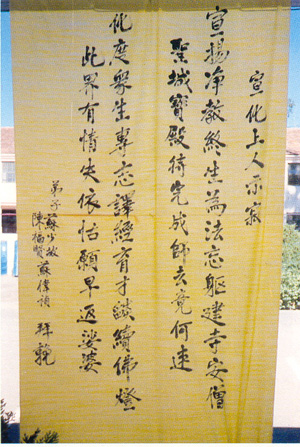 宣化上人示寂
宣揚净教終生為法忘軀建寺安僧
聖城寶殿待完成師去竟何速
化度衆生專志譯經育才續佛燈
此界有情失依怙願早返娑婆
弟子蘇少敏
陳伯賢蘇偉 拜輓